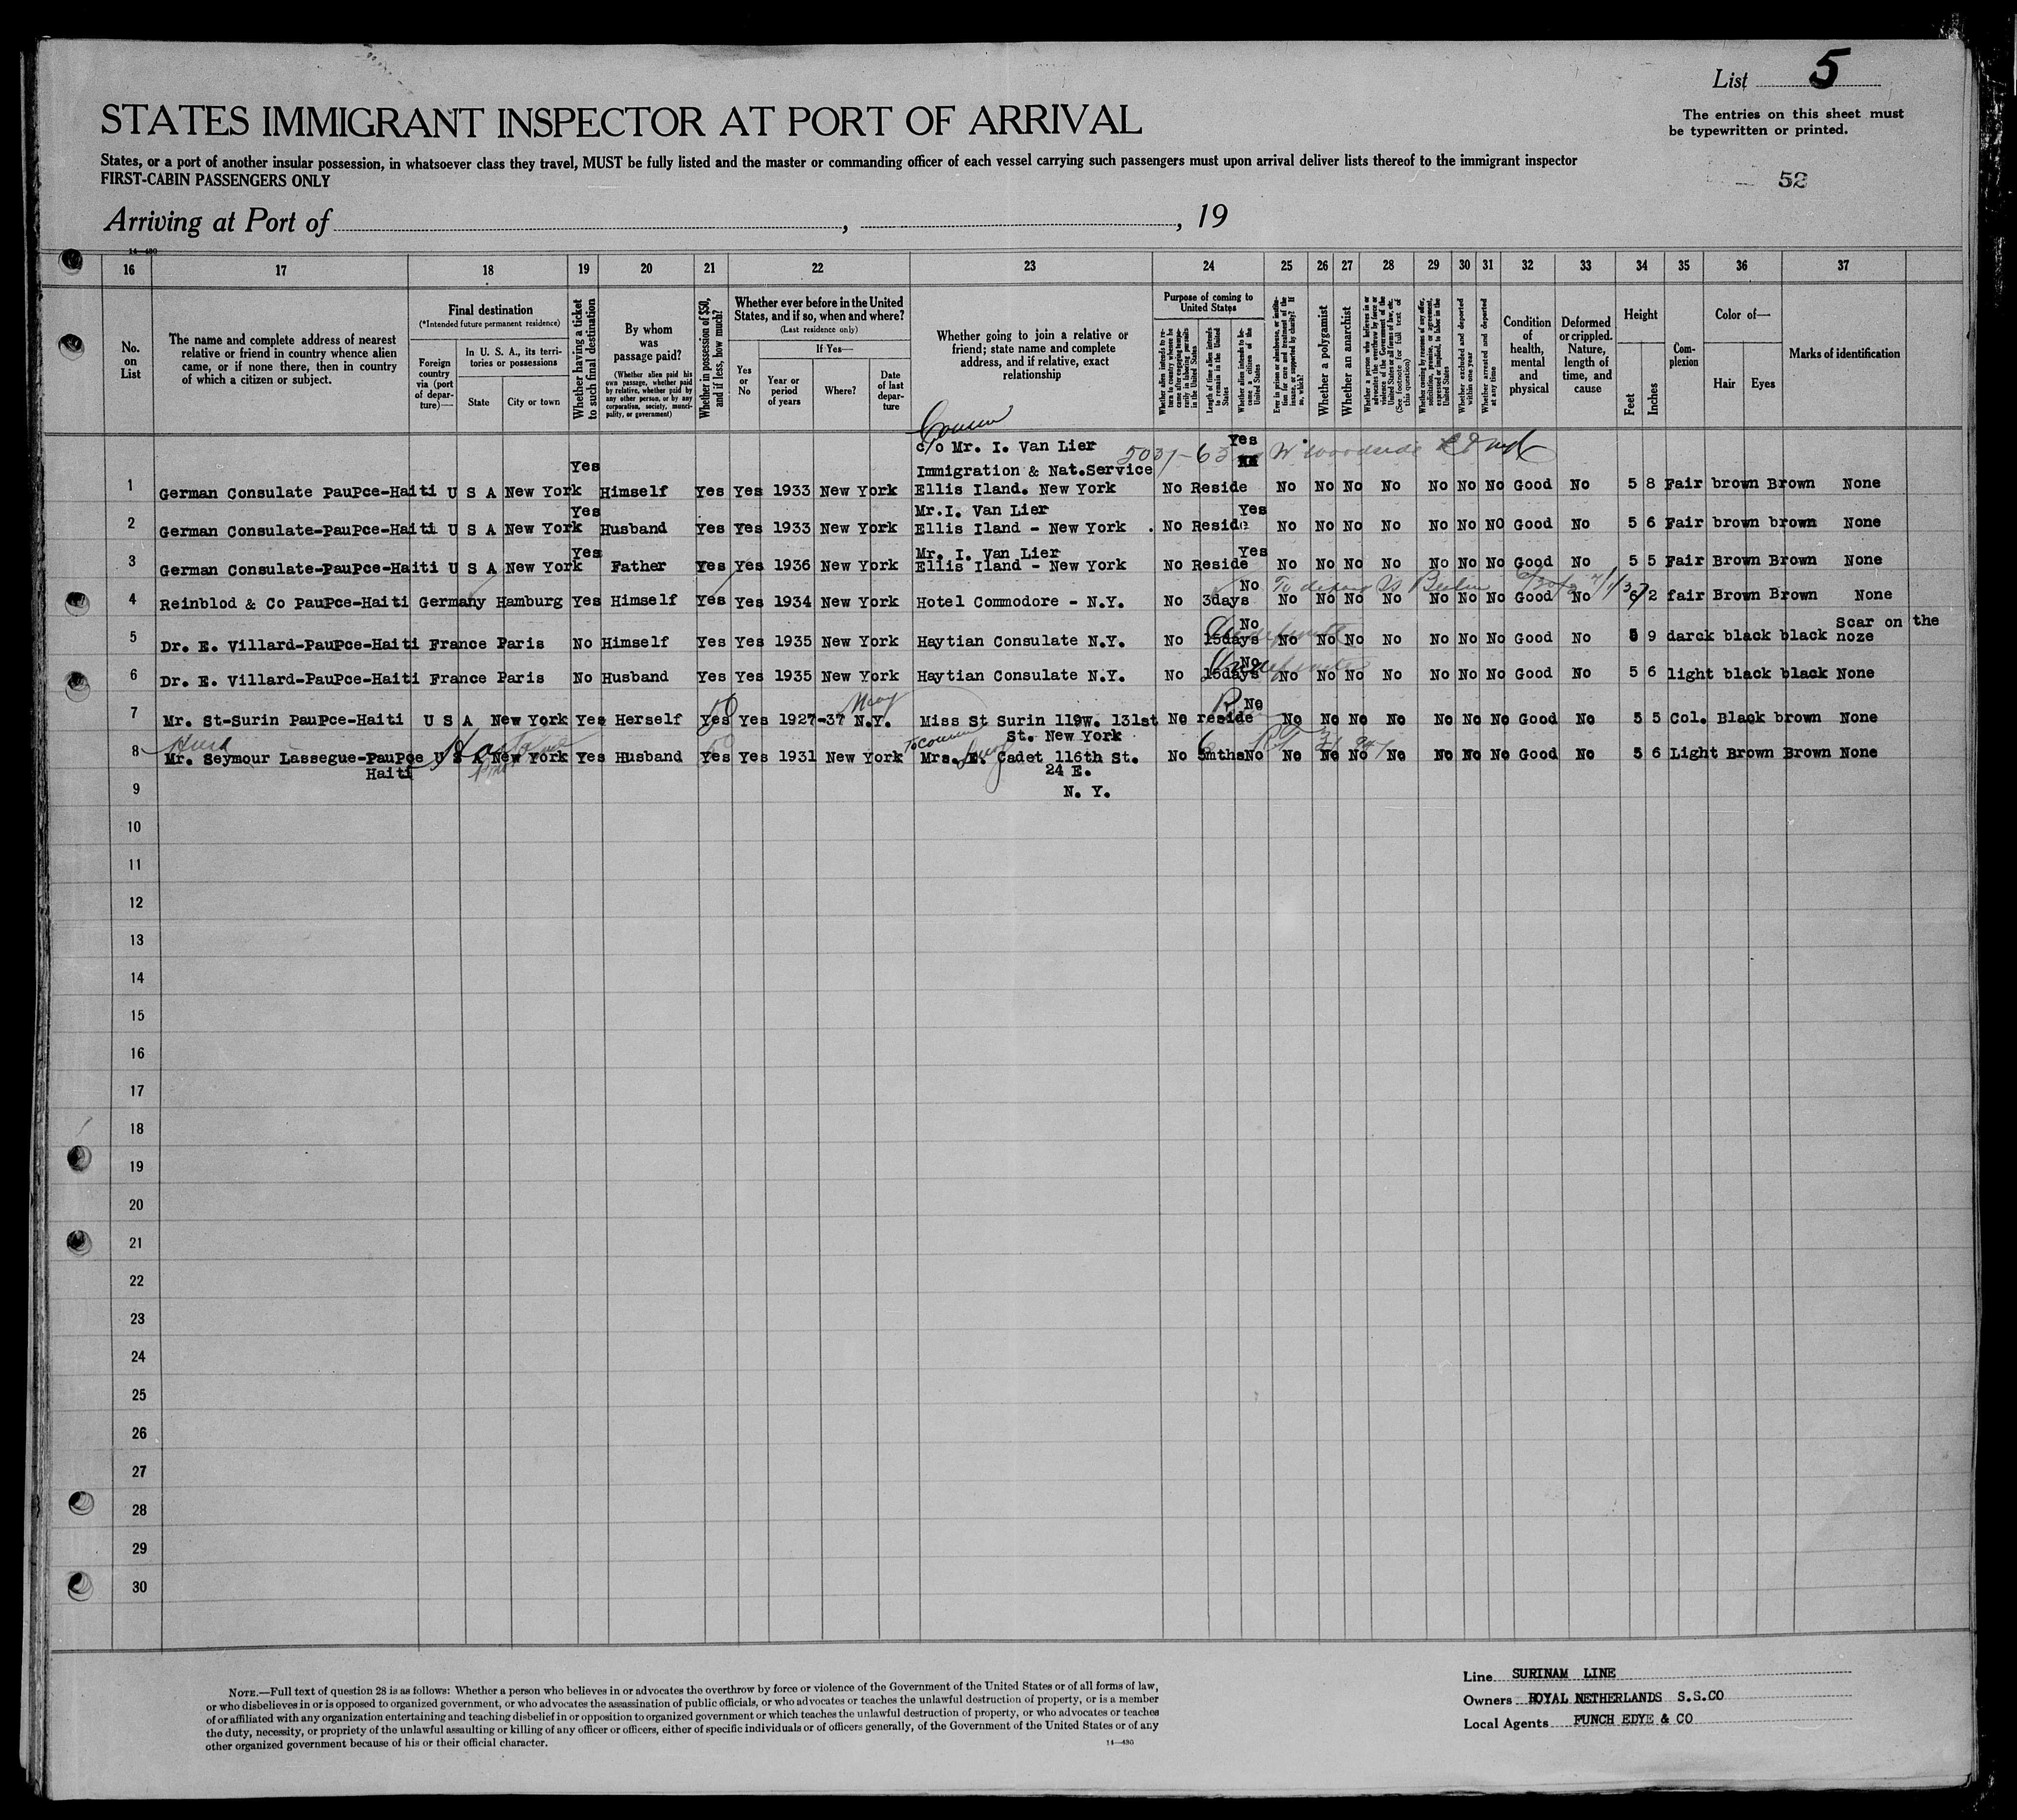 List 5
STATES IMMIGRANT INSPECTOR AT PORT OF ARRIVAL
The entries on this sheet must
be typewritten or printed.
States, or a port of another insular possession, in whatsoever class they travel, MUST be fully listed and the master or commanding officer of each vessel carrying such passengers must upon arrival deliver lists thereof to the immigrant inspector
FIRST-CABIN PASSENGERS ONLY
52
Arriving at Port of , , 19
14—430
16 17 18 19 20 21 22 23 24 25 26 27 28 29 30 31 32 33 34 35 36 37
No. on List
The name and complete address of nearest relative or friend in country whence alien came, or if none there, then in country of which a citizen or subject.
Final destination
(*Intended future permanent residence)
Foreign country via (port of departure)—
In U. S. A., its territories or possessions
State
City or town
Whether having a ticket to such final destination
By whom was passage paid?
(Whether alien paid his own passage, whether paid by relative, whether paid by any other person, or by any corporation, society, municipality, or government)
Whether in possession of $50, and if less, how much?
Whether ever before in the United States, and if so, when and where?
(Last residence only)
If Yes—
Yes or No
Year or period of years
Where?
Date of last departure
Whether going to join a relative or friend; state name and complete address, and if relative, exact relationship
Purpose of coming to United States
Whether alien intends to return to country whence he came after engaging temporarily in laboring pursuits in the United States
Length of time alien intends to remain in the United States
Whether alien intends to become a citizen of the United States
Ever in prison or almshouse, or institution for care and treatment of the insane, or supported by charity? If so, which?
Whether a polygamist
Whether an anarchist
Whether a person who believes in or advocates the overthrow by force or violence of the Government of the United States or all forms of law, etc. (See footnote for full text of this question)
Whether coming by reasons of any offer, solicitation, promise, or agreement, expressed or implied, to labor in the United States
Whether excluded and deported within one year
Whether arrested and deported at any time
Condition of health, mental and physical
Deformed or crippled. Nature, length of time, and cause
Height
Feet
Inches
Complexion
Color of—
Hair
Eyes
Marks of identification
Cousin
c/o Mr. I. Van Lier Yes
5037-63 W Woodside
Yes Immigration & Nat.Service
1 German Consulate PauPce-Haiti U S A New York Himself Yes Yes 1933 New York Ellis Iland. New York No Reside No No No No No No No Good No 5 8 Fair brown Brown None
Yes Mr.I. Van Lier Yes
2 German Consulate-PauPce-Haiti U S A New York Husband Yes Yes 1933 New York Ellis Iland - New York . No Reside No No No No No No No Good No 5 6 Fair brown brown None
Yes Mr. I. Van Lier Yes
3 German Consulate-PauPce-Haiti U S A New York Father Yes Yes 1936 New York Ellis Iland - New York No Reside No No No No No No No Good No 5 5 Fair Brown Brown None
No To Berlin
4 Reinblod & Co PauPce-Haiti Germany Hamburg Yes Himself Yes Yes 1934 New York Hotel Commodore - N.Y. No 3days No No No No No No No Good No 6 2 fair Brown Brown None
No Scar on the
5 Dr. E. Villard-PauPce-Haiti France Paris No Himself Yes Yes 1935 New York Haytian Consulate N.Y. No 15days No No No No No No No Good No 5 9 darck black black noze
No
6 Dr. E. Villard-PauPce-Haiti France Paris No Husband Yes Yes 1935 New York Haytian Consulate N.Y. No 15days No No No No No No No Good No 5 6 light black black None
50 May No
7 Mr. St-Surin PauPce-Haiti U S A New York Yes Herself Yes Yes 1927-37 N.Y. Miss St Surin 119w. 131st No reside No No No No No No No Good No 5 5 Col. Black brown None
St. New York
Husb 50 To cousin 6
8 Mr. Seymour Lassegue-PauPce U S A New York Yes Husband Yes Yes 1931 New York Mrs. E. Cadet 116th St. No 5mths No No No No No No No No Good No 5 6 Light Brown Brown None
Haiti 24 E.
9 N. Y.
10
11
12
13
14
15
16
17
18
19
20
21
22
23
24
25
26
27
28
29
30
NOTE.—Full text of question 28 is as follows: Whether a person who believes in or advocates the overthrow by force or violence of the Government of the United States or of all forms of law,
or who disbelieves in or is opposed to organized government, or who advocates the assassination of public officials, or who advocates or teaches the unlawful destruction of property, or is a member
of or affiliated with any organization entertaining and teaching disbelief in or opposition to organized government or which teaches the unlawful destruction of property, or who advocates or teaches
the duty, necessity, or propriety of the unlawful assaulting or killing of any officer or officers, either of specific individuals or of officers generally, of the Government of the United States or of any
other organized government because of his or their official character.
14—430
Line SURINAM LINE
Owners ROYAL NETHERLANDS S.S.CO
Local Agents FUNCH EDYE & CO